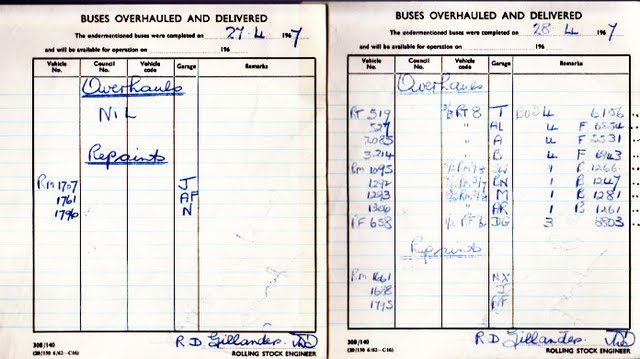 BUSES OVERHAULED AND DELIVERED
The undermentioned buses were completed on 27.4. 1967
and will be available for operation on 196
Vehicle No. Council No. Vehicle code Garage Remarks
Overhauls
NIL
Repaints
RM 1707 J
1761 AF
1796 N
308/140
(20/150 6/62—C16)
R.D. Gillander.
ROLLING STOCK ENGINEER
BUSES OVERHAULED AND DELIVERED
The undermentioned buses were completed on 28.4. 1967
and will be available for operation on 196
Vehicle No. Council No. Vehicle code Garage Remarks
Overhauls
RT 519 RT8 T BODY 4 6156
527 " AL 4 F
2085 " A 4 F 5531
3214 " B 4 F
RM 1095 1 B 1266
1292 BN 1 B 1247
1293 M 1 B 1281
1306 " AK 1 B 1261
RF 658 RF DG 3 8803
Repaints
RM 1661 NX
1698 J
1715 AF
308/140
(20/150 6/62—C16)
R.D. Gillander.
ROLLING STOCK ENGINEER